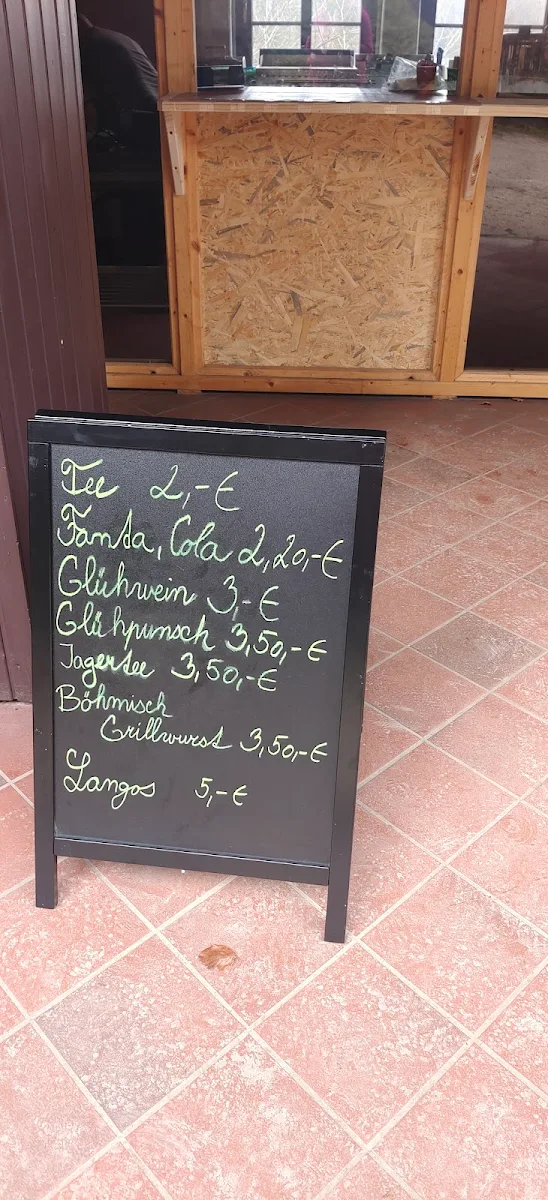 Tee 2,-€
Fanta, Cola 2,20,-€
Glühwein 3,-€
Glühpunsch 3,50,-€
Jagertee 3,50,-€
Böhmisch
Grillwurst 3,50,-€
Langos 5,-€